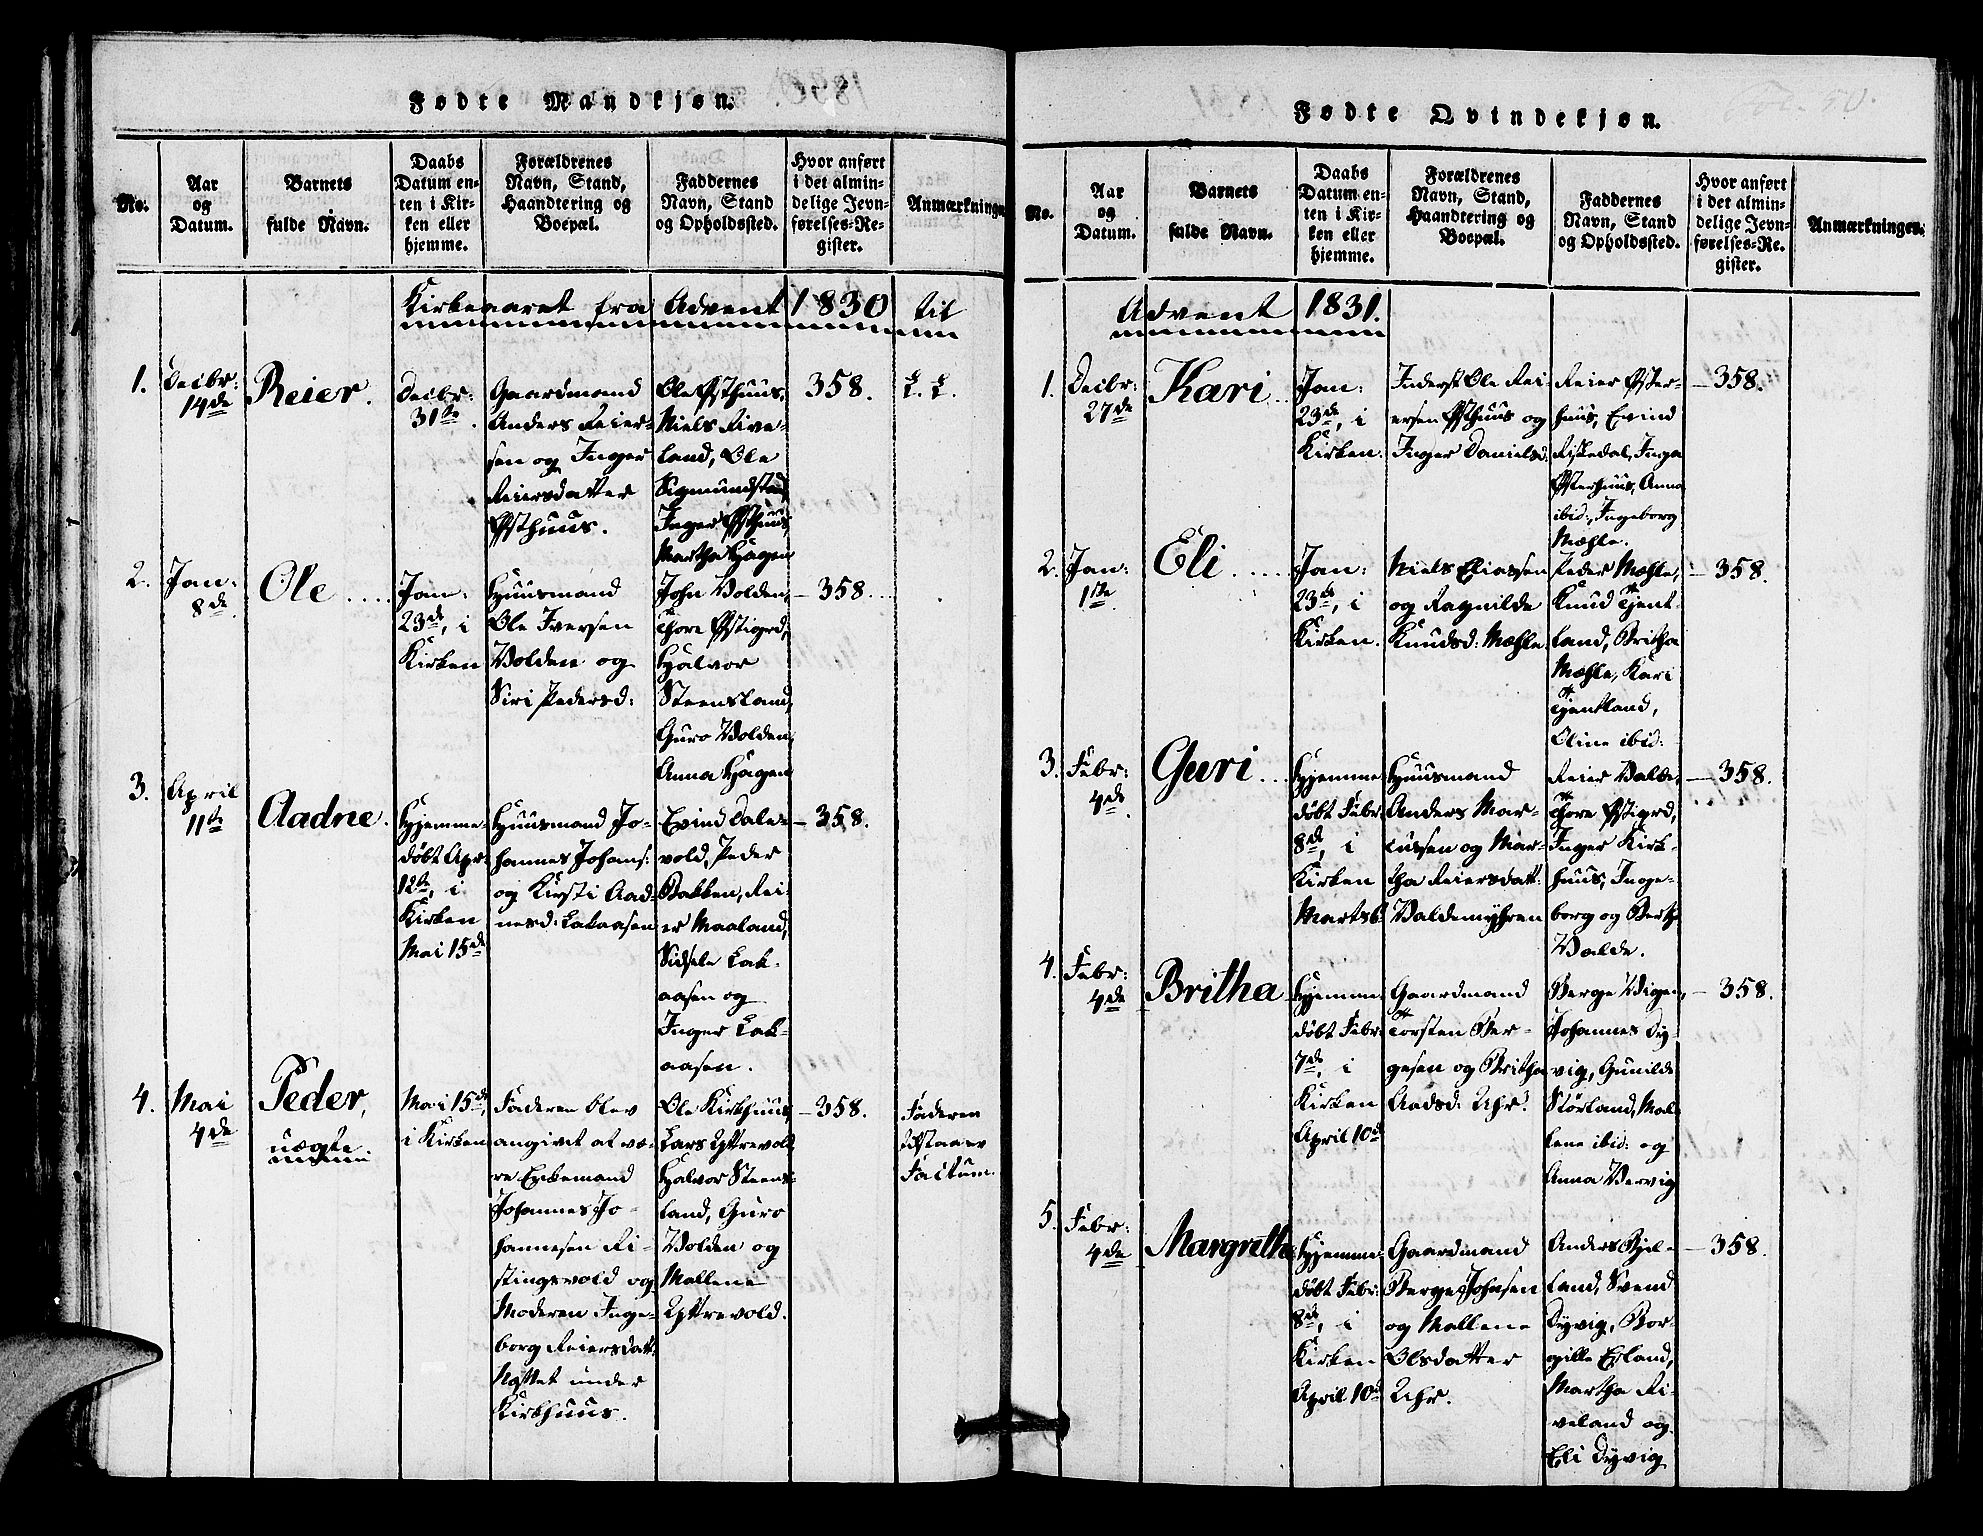 Fødte Mandkjøn.
No.
Aar
og
Datum.
Barnets
fulde Navn.
Daabs
Datum en-
ten i Kir-
ken eller
hjemme.
Forældrenes
Navn, Stand,
Haandtering og
Boepæl.
Faddernes
Navn, Stand
og Opholdssted.
Hvor anført
i det almin-
delige Jevn-
førelses-Re-
gister.
Anmærkninger
Kirkeaaret fra Advent 1830 til
1.
Decbr:
14de
Reier.
Decbr:
31te
Gaardmand
Anders Reier-
sen og Inger
Reiersdatter
Østhuus.
Ole Østhuus,
Niels Rive-
land, Ole
Sigmundstad,
Inger Østhuus,
Martha Hagen
358.
2.
Jan:
8de
Ole
Jan:
23de, i
Kirken
Huusmand
Ole Iversen
Volden og
Siri Pedersd:
John Volden,
Thore Østigrd,
Halvor
Steensland,
Guro Volden,
Anna Hagen
358.
3.
April
11te
Aadne.
Hjemme-
døbt Apr:
12te, i
Kirken
Mai 15de
Huusmand Jo-
hannes Johans:
og Kirsti Aad-
nesd: Lakaasen
Evind Dale-
vold, Peder
Bakken, Rei-
er Maaland,
Sidsele Lak-
aasen og
Inger Lak-
aasen.
358.
4.
Mai
4de
Peder,
uægte
Mai 15de,
i Kirken
Faderen blev
angivet at væ-
re Enkemand
Johannes Jo-
hannesen Ri-
stingsvold og
Moderen Inge-
borg Reiersdatt:
under
Kirkhuus.
Ole Kirkhuus,
Lars Yttrevold,
Halvor Steens-
land, Guro
Volden og
Mallene
Yttrevold.
358.
Faderen
tilstaaer
Factum.
Fødte Qvindekjøn.
Fol. 50.
No.
Aar
og
Datum.
Barnets
fulde Navn.
Daabs
Datum en-
ten i Kir-
ken eller
hjemme.
Forældrenes
Navn, Stand,
Haandtering og
Boepæl.
Faddernes
Navn, Stand
og Opholdssted.
Hvor anført
i det almin-
delige Jevn-
førelses-Re-
gister.
Anmærkninger.
Advent 1831.
1.
Decbr:
27de
Kari
Jan:
23de, i
Kirken.
Inderst Ole Rei-
ersen Østhuus og
Inger Danielsd:
Reier Øster-
huus, Evind
Riskedal, Inga
Østerhuus, Anna
ibid:, Ingeborg
Mæhle.
358.
2.
Jan:
1ste
Eli
Jan:
23de, i
Kirken.
Niels Eliassen
og Ragnilde
Knudsd: Mæhle
Peder Mæhle,
Knud Tjent-
land, Britha
Mæhle, Kari
Tjentland,
Oline ibid:
358.
3.
Febr:
4de
Guri
Hjemme
døbt Febr:
8de, i
Kirken
Marts 6.
Huusmand
Anders Mar-
cussen og Mar-
tha Reiersdatt:
Valdemyhren
Reier Valde,
Thore Østigrd,
Inger Kirk-
huus, Inge-
borg og Berthe
Valde.
358.
4.
Febr:
4de
Britha
Hjemme
døbt Febr:
7de, i
Kirken
April 10de
Gaardmand
Torsten Ber-
gesen og Britha
Aadsd: Uhr.
Berge Vigen,
Johannes Dy-
vig, Gunilde
Størland, Mal-
lene ibid: og
Anna Vervig
358.
5.
Febr:
4de
Margrethe
Hjemme-
døbt Febr:
8de, i
Kirken
April 10de
Gaardmand
Berge Johsen
og Mallene
Olsdatter
Uhr.
Anders Bjel-
land, Svend
Dyvig, Bor-
gille Erland,
Martha Ri-
veland og
Eli Dyvig
358.